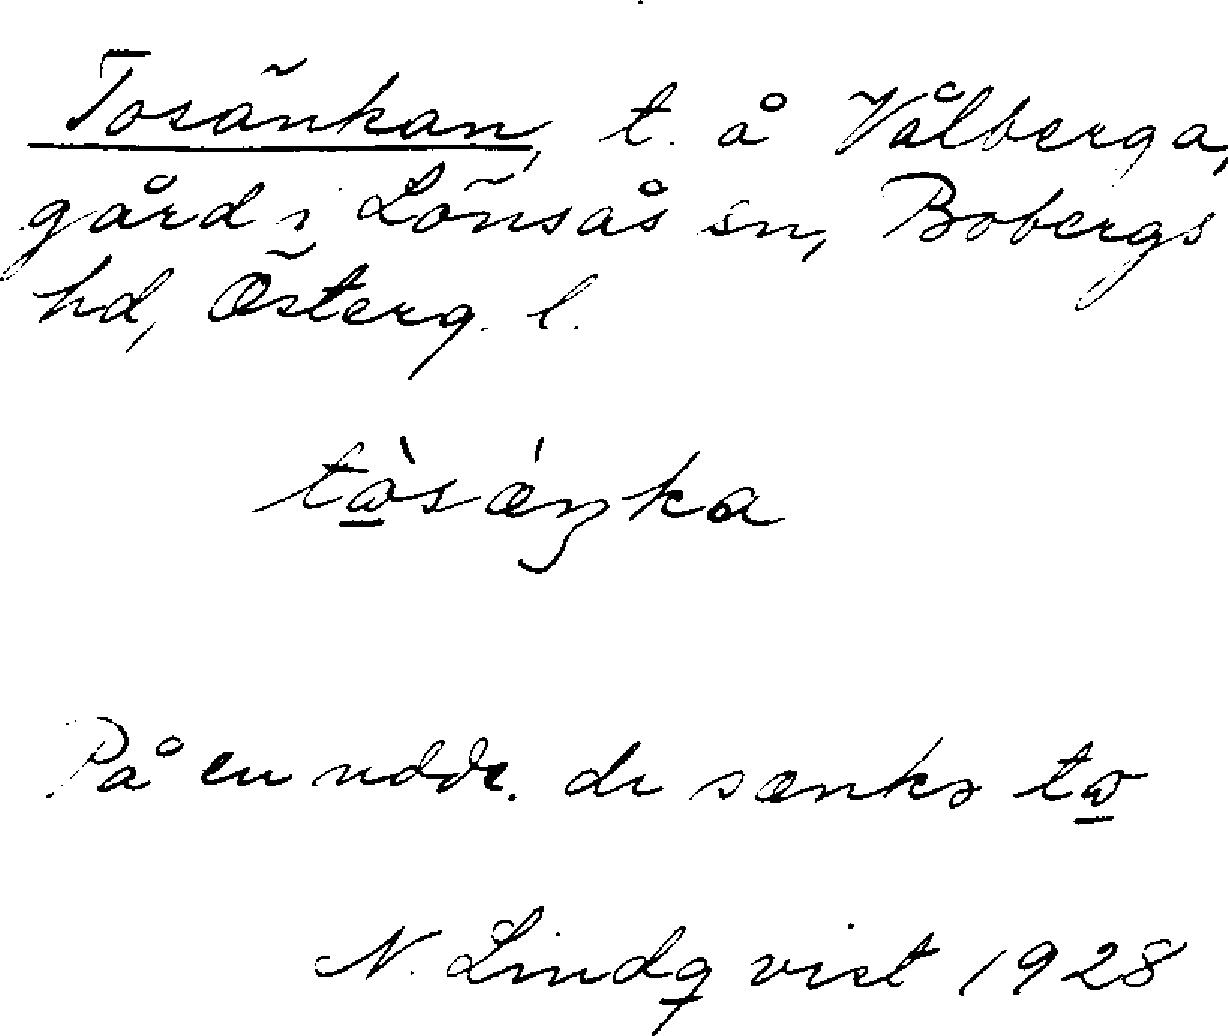 Tosänkan, t. å Vålberga,
gård i Lönsås sn, Bobergs
hd, Österg. l.
tὼ̲sǽŋka
På en udde. de sænkə tω̲
N. Lindqvist 1928